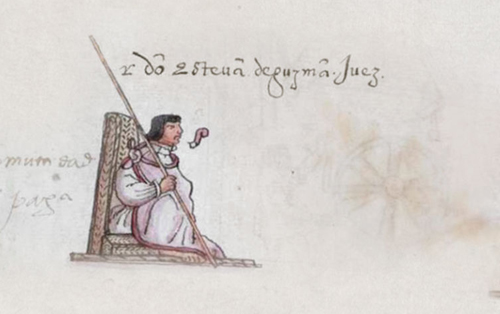 r dō Esteuā. deguzmā. Juez.
munidad
paga